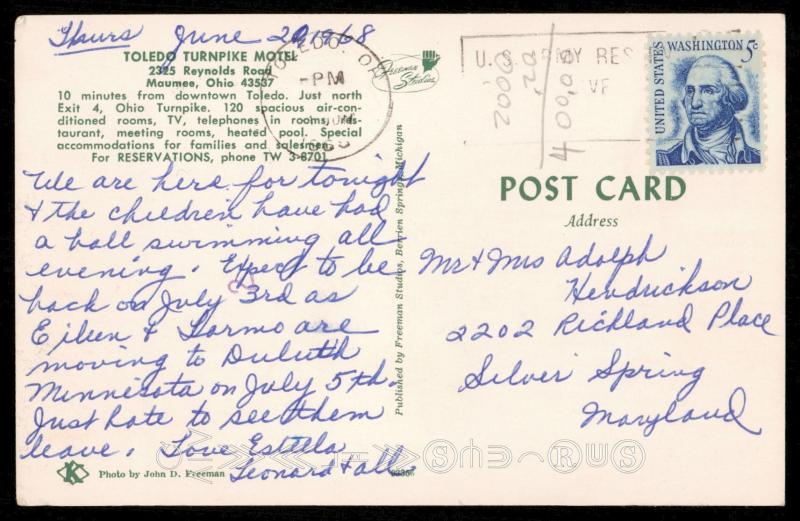 Thurs June 20, 1968
TOLEDO TURNPIKE MOTEL
2325 Reynolds Road
Maumee, Ohio 43537
10 minutes from downtown Toledo. Just north
Exit 4, Ohio Turnpike. 120 spacious air-con-
ditioned rooms, TV, telephones in rooms, res-
taurant, meeting rooms, heated pool. Special
accommodations for families and salesmen.
For RESERVATIONS, phone TW 3-8701
We are here for tonight
& the children have had
a ball swimming all
evening. Expect to be
back on July 3rd as
Eileen & Larmo are
moving to Duluth
Minnesota on July 5th.
Just hate to see them
leave. Love Estella
Leonard & all.
K
Photo by John D. Freeman
Published by Freeman Studios, Berrien Springs, Michigan
Freeman
Studios
TOLEDO, OH
PM
1968
U. S. ARMY RES
VE
2000
.20
400.00
UNITED STATES
WASHINGTON 5c
POST CARD
Address
Mr & Mrs Adolph
Hendrickson
2202 Richland Place
Silver Spring
Maryland